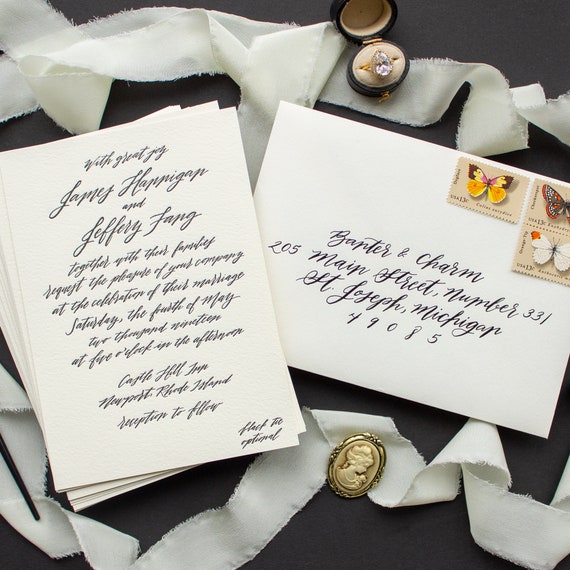 with great joy
James Hannigan
and
Jeffery Fang
together with their families
request the pleasure of your company
at the celebration of their marriage
Saturday, the fourth of May
two thousand nineteen
at five o'clock in the afternoon
Castle Hill Inn
Newport, Rhode Island
reception to follow
black tie
optional
Banter & Charm
205 Main Street, Number 331
St. Joseph, Michigan
49085
USA 13c
Colias eurydice
USA 13c
USA 13c
Orange-Tip